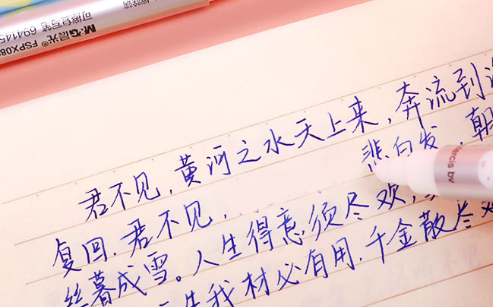 M&G晨光®
FSPX08
694145
君不见,黄河之水天上来,奔流到
悲白发,朝
复回.君不见,......
丝暮成雪。人生得意须尽欢,
生我材必有用,千金散尽